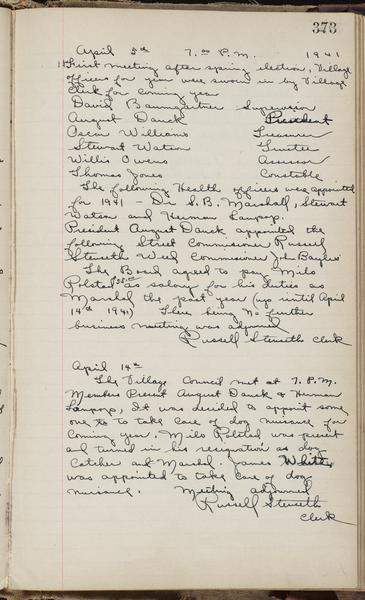 373
April 5th 7.00 P.M. 1941
First meeting after spring election, Village
officers for year were sworn in by Village
Clerk for coming year
David Baumgartner Supervisor
August Danck President
Oscar Williams Treasurer
Stewart Watson Trustee
Willis Owens Assessor
Thomas Jones Constable
The following Health officers were appointed
for 1941 - Dr S.B. Marshall, Stewart
Watson and Herman
President August Danck appointed the
following Street Commissioner Russell
Weed Commissioner John
The Board agreed to pay Milo
Polsted as salary for his duties as
Marshal the past year (up until April
14th 1941) There being no further
business meeting was adjourned
Russell clerk
April 14th
The Village Council met at 7. P.M.
Members Present August Danck & Herman
It was decided to appoint some
one to to take care of dog nuisance for
coming year. Milo Polsted was present
and turned in his resignation as dog
catcher and Marshal. James
was appointed to take care of dog
nuisance. Meeting adjourned
Russell
clerk